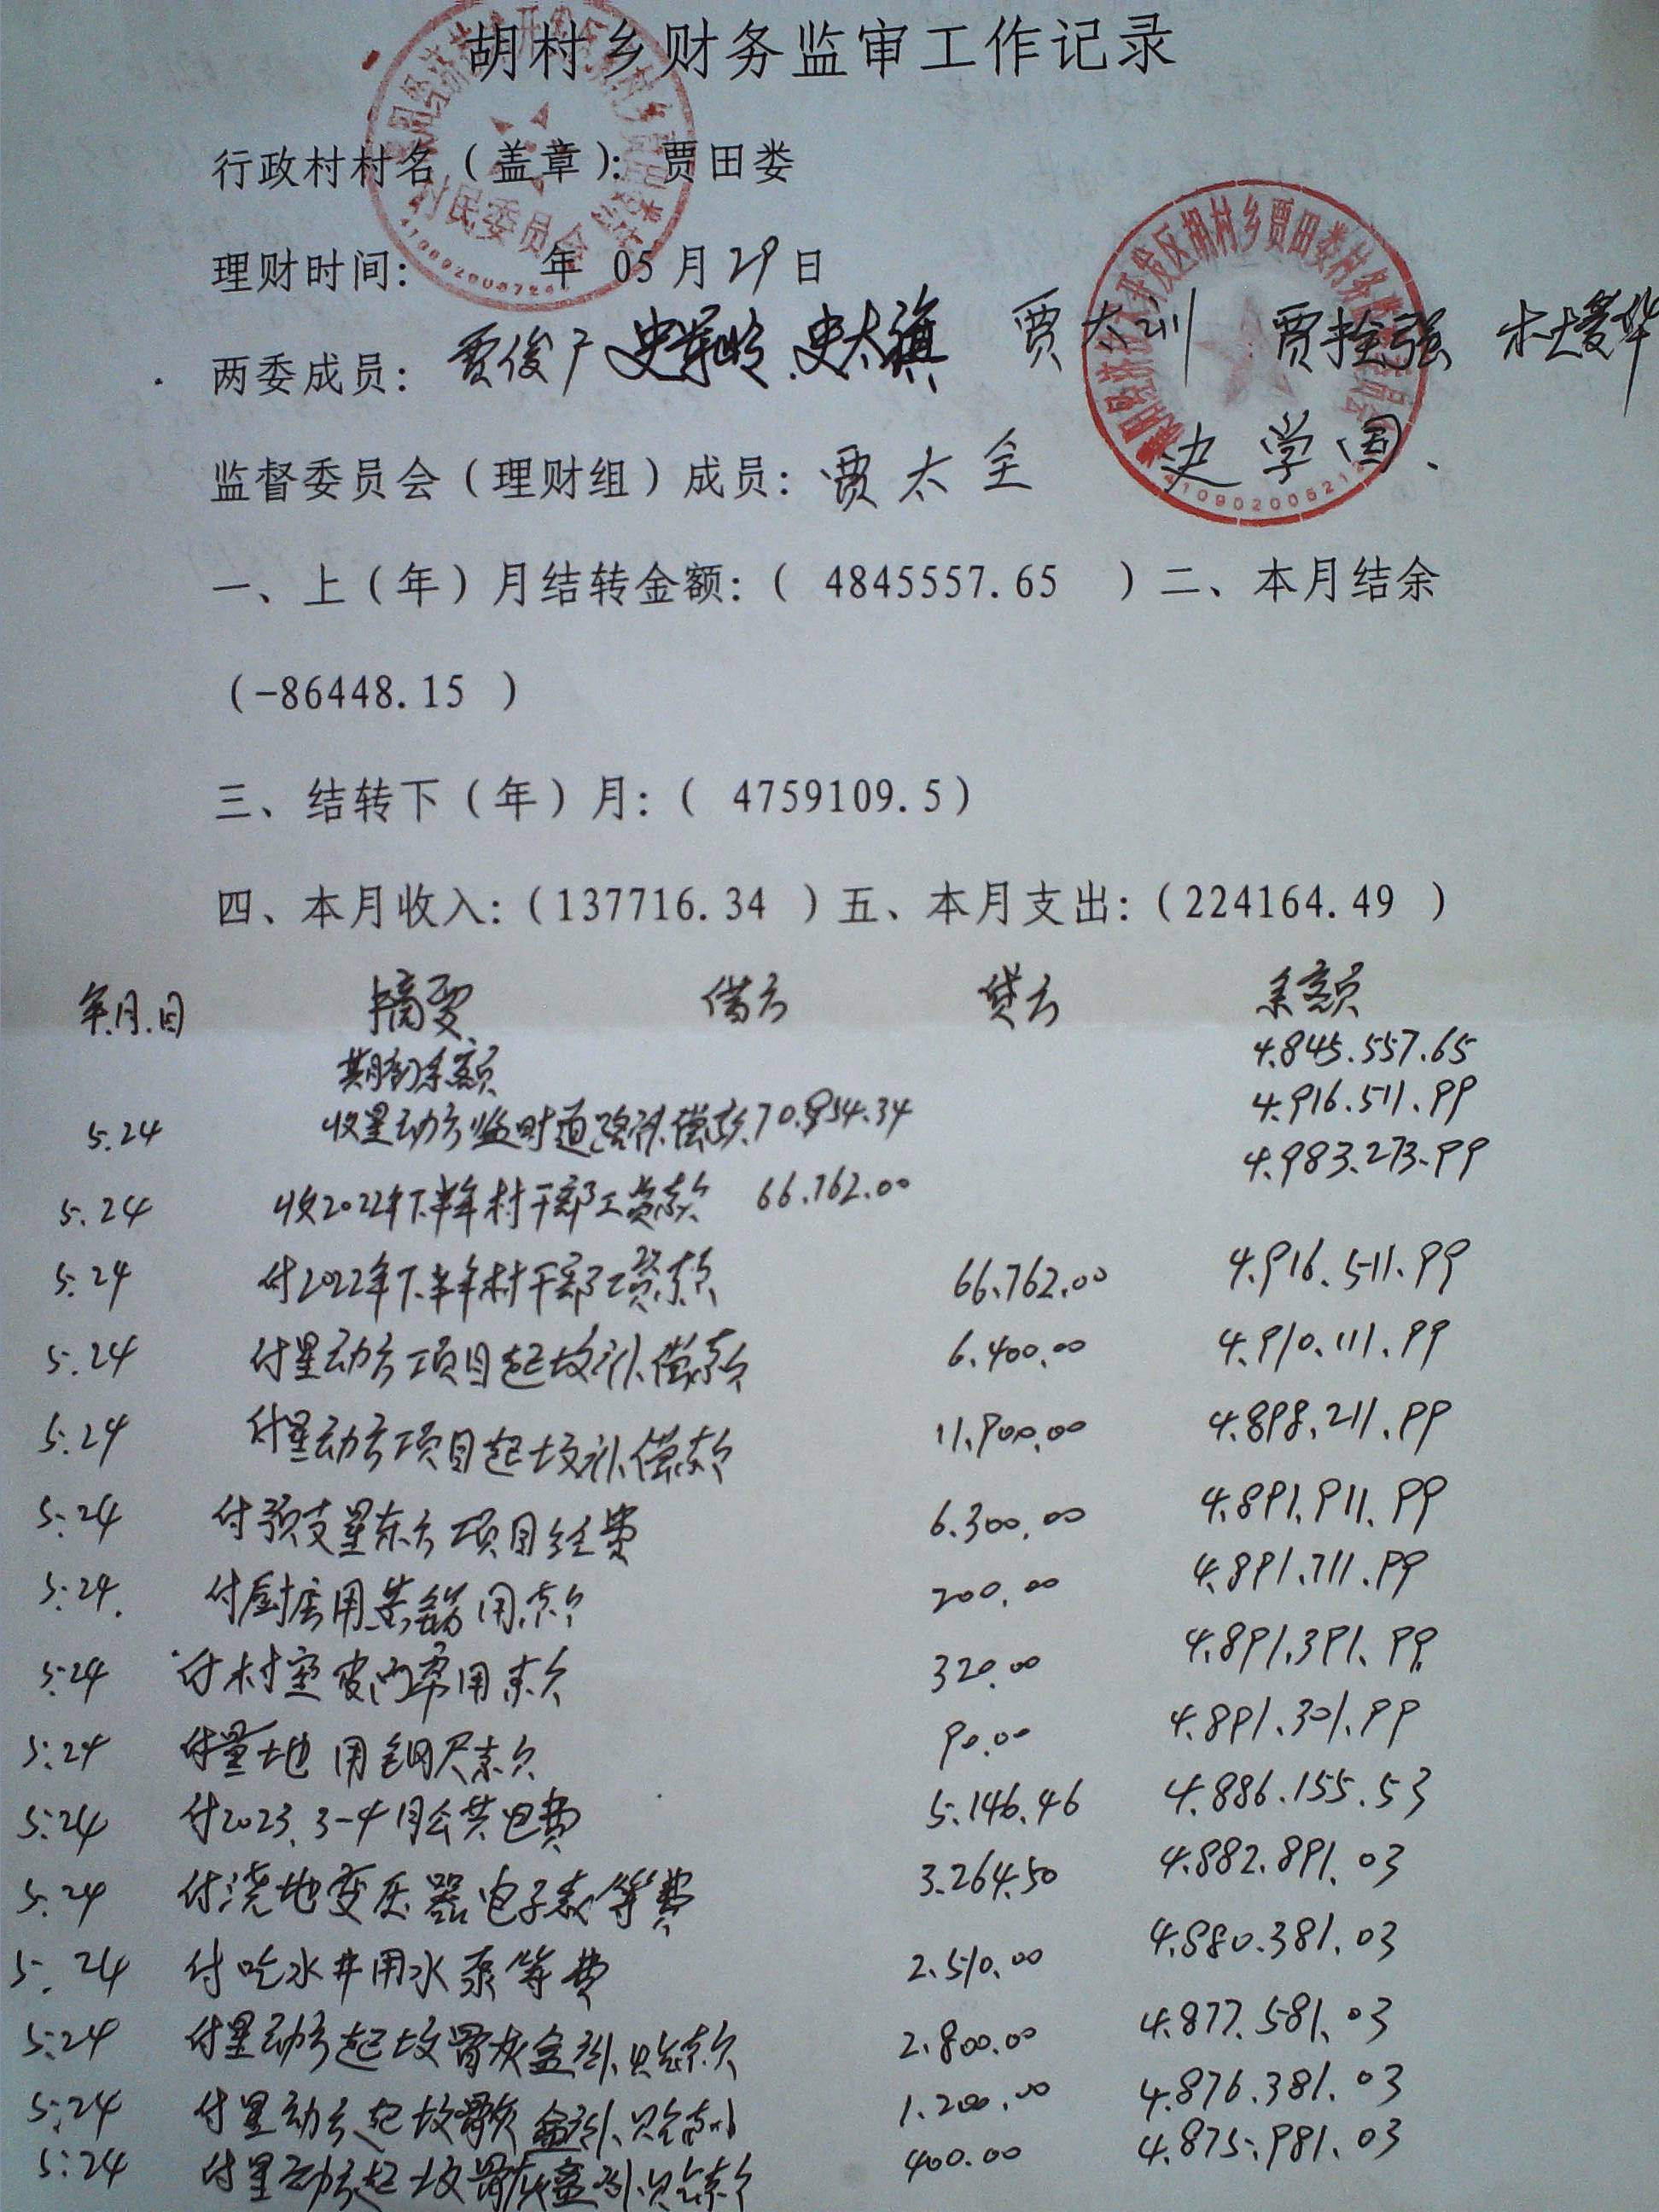 胡村乡财务监审工作记录
行政村村名（盖章）： 贾田娄
村民委员会
理财时间： 年 05 月 29 日
两委成员： 贾俊广 史太旗 贾太训 贾拴强 杜爱华
监督委员会（理财组）成员： 贾太全 史学国、
开发区胡村乡贾田娄村务
一、上（年）月结转金额：（ 4845557.65 ）二、本月结余
（-86448.15 ）
三、结转下（年）月：（ 4759109.5）
四、本月收入：（137716.34 ）五、本月支出：（224164.49 ）
年.月.日 摘要 借方 贷方 余额
期初余额 4.845.557.65
5.24 收星动方临时道路补偿款 70.954.34 4.916.511.99
5.24 收2022年下半年村干部工资款 66.762.00 4.983.273.99
5.24 付2022年下半年村干部工资款 66.762.00 4.916.511.99
5.24 付星动方项目起坟补偿款 6.400.00 4.910.111.99
5.24 付星动方项目起坟补偿款 11.900.00 4.898.211.99
5.24 付预支星东方项目经费 6.300.00 4.891.911.99
5.24. 付厨房用蒸锅用款 200.00 4.891.711.99
5.24 付村室皮门帘用款 320.00 4.891.391.99
5.24 付量地用钢尺款 90.00 4.891.301.99
5.24 付2023.3-4月公共电费 5.146.46 4.886.155.53
5.24 付浇地变压器电子表等费 3.264.50 4.882.891.03
5.24 付吃水井用水泵等费 2.510.00 4.880.381.03
5.24 付星动方起坟骨灰盒补贴款 2.800.00 4.877.581.03
5.24 付星动方起坟骨灰盒补贴款 1.200.00 4.876.381.03
5.24 付星动方起坟骨灰盒补贴款 400.00 4.875.981.03